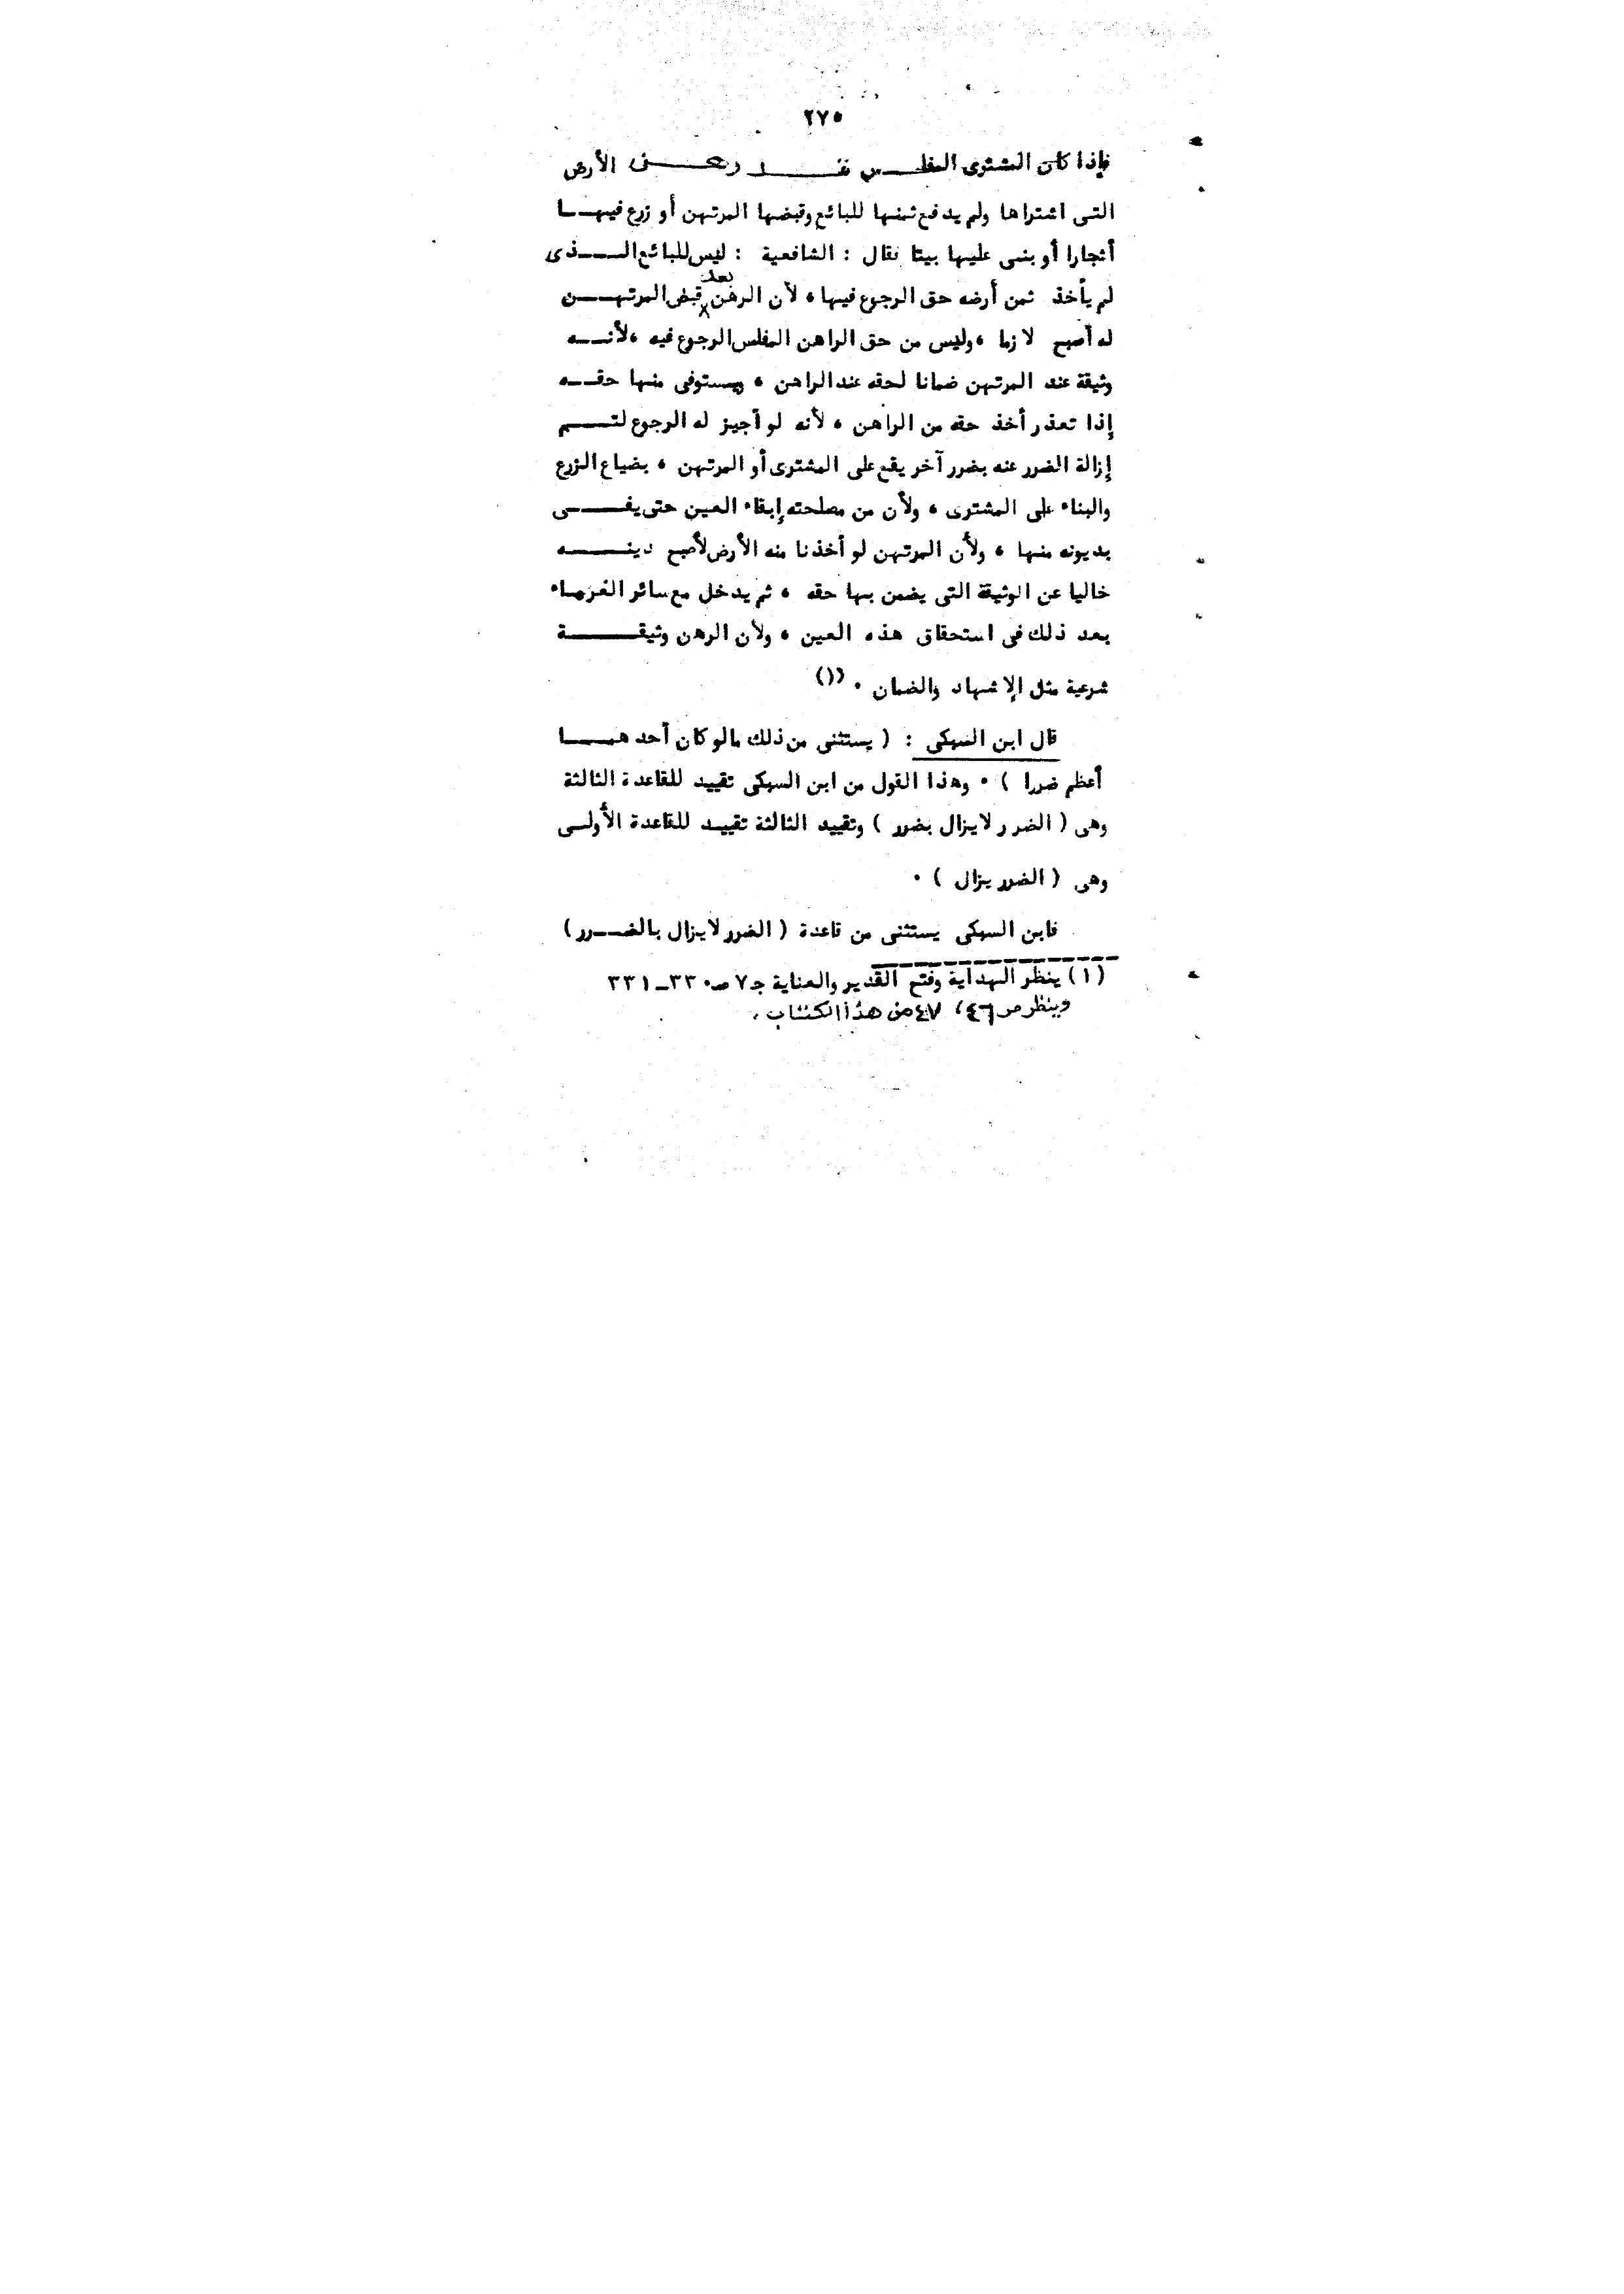 ٢٧٥
فإذا كان المشترى المفلس قد رهن الأرض
التى اشتراها ولم يدفع ثمنها للبائع وقبضها المرتهن أو زرع فيها
أشجارا أو بنى عليها بيتا فقال : الشافعية : ليس للبائع الذى
لم يأخذ ثمن أرضه حق الرجوع فيها ، لأن الرهن بعد قبض المرتهن
له أصبح لازما ، وليس من حق الراهن المفلس الرجوع فيه ، لأنه
وثيقة عند المرتهن ضمانا لحقه عند الراهن ، ويستوفى منها حقه
إذا تعذر أخذ حقه من الراهن ، لأنه لو أجيز له الرجوع لتم
إزالة الضرر عنه بضرر آخر يقع على المشترى أو المرتهن ، بضياع الزرع
والبناء على المشترى ، ولأن من مصلحته إبقاء العين حتى يفى
بديونه منها ، ولأن المرتهن لو أخذنا منه الأرض لأصبح دينه
خاليا عن الوثيقة التى يضمن بها حقه ، ثم يدخل مع سائر الغرماء
بعد ذلك فى استحقاق هذه العين ، ولأن الرهن وثيقة
شرعية مثل الإشهاد والضمان . (١)
قال ابن السبكى : ( يستثنى من ذلك مالو كان أحدهما
أعظم ضررا ) . وهذا القول من ابن السبكى تقييد للقاعدة الثالثة
وهى ( الضرر لايزال بضرر ) وتقييد الثالثة تقييد للقاعدة الأولى
وهى ( الضرر يزال ) .
فابن السبكى يستثنى من قاعدة ( الضرر لايزال بالضرر )
(١) ينظر الهداية وفتح القدير والعناية جـ٧ صـ ٣٣٠ـ٣٣١
وينظر ص ٤٦، ٤٧ من هذا الكتاب .